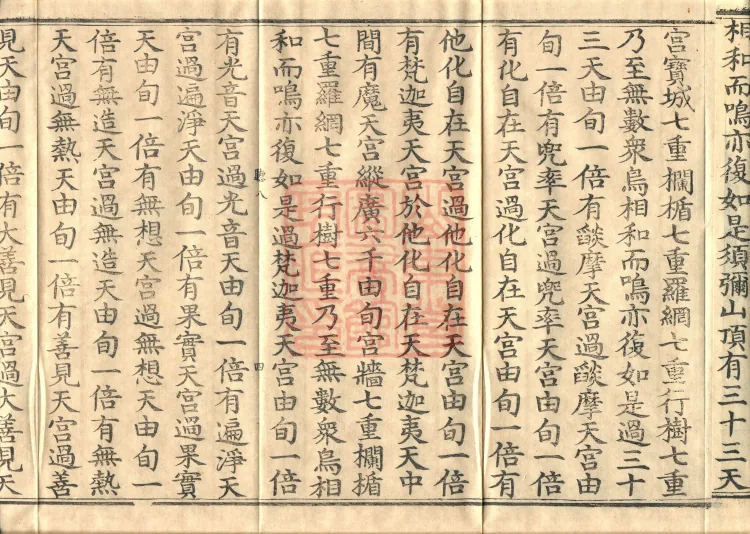 相和而鳴亦復如是須彌山頂有三十三天
宮寶城七重欄楯七重羅網七重行樹七重
乃至無數衆鳥相和而鳴亦復如是過三十
三天由旬一倍有燄摩天宮過燄摩天宮由
旬一倍有兜率天宮過兜率天宮由旬一倍
有化自在天宮過化自在天宮由旬一倍有
他化自在天宮過他化自在天宮由旬一倍
有梵迦夷天宮於他化自在天梵迦夷天中
間有魔天宮縱廣六千由旬宮牆七重欄楯
七重羅網七重行樹七重乃至無數衆鳥相
和而鳴亦復如是過梵迦夷天宮由旬一倍
聽八 四
有光音天宮過光音天由旬一倍有遍淨天
宮過遍淨天由旬一倍有果實天宮過果實
天由旬一倍有無想天宮過無想天由旬一
倍有無造天宮過無造天由旬一倍有無熱
天宮過無熱天由旬一倍有善見天宮過善
見天由旬一倍有大善見天宮過大善見天